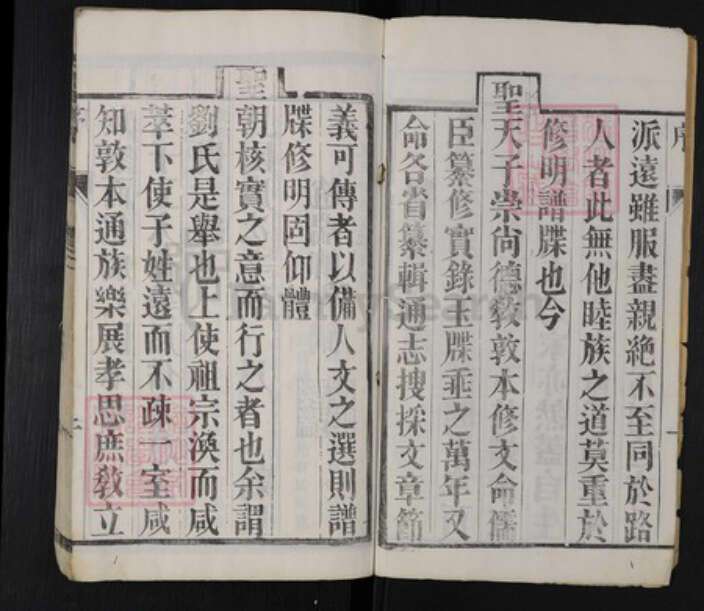 序
派遠雖服盡親絕不至同於路
人者此無他睦族之道莫重於
修明譜牒也今
聖天子崇尚德教敦本修文命儒
臣纂修實錄玉牒垂之萬年又
命各省纂輯通志搜採文章節
義可傳者以備人文之選則譜
牒修明固仰體
聖朝核實之意而行之者也余謂
劉氏是舉也上使祖宗渙而咸
萃下使子姓遠而不疎一室咸
知敦本通族樂展孝思庶敎立